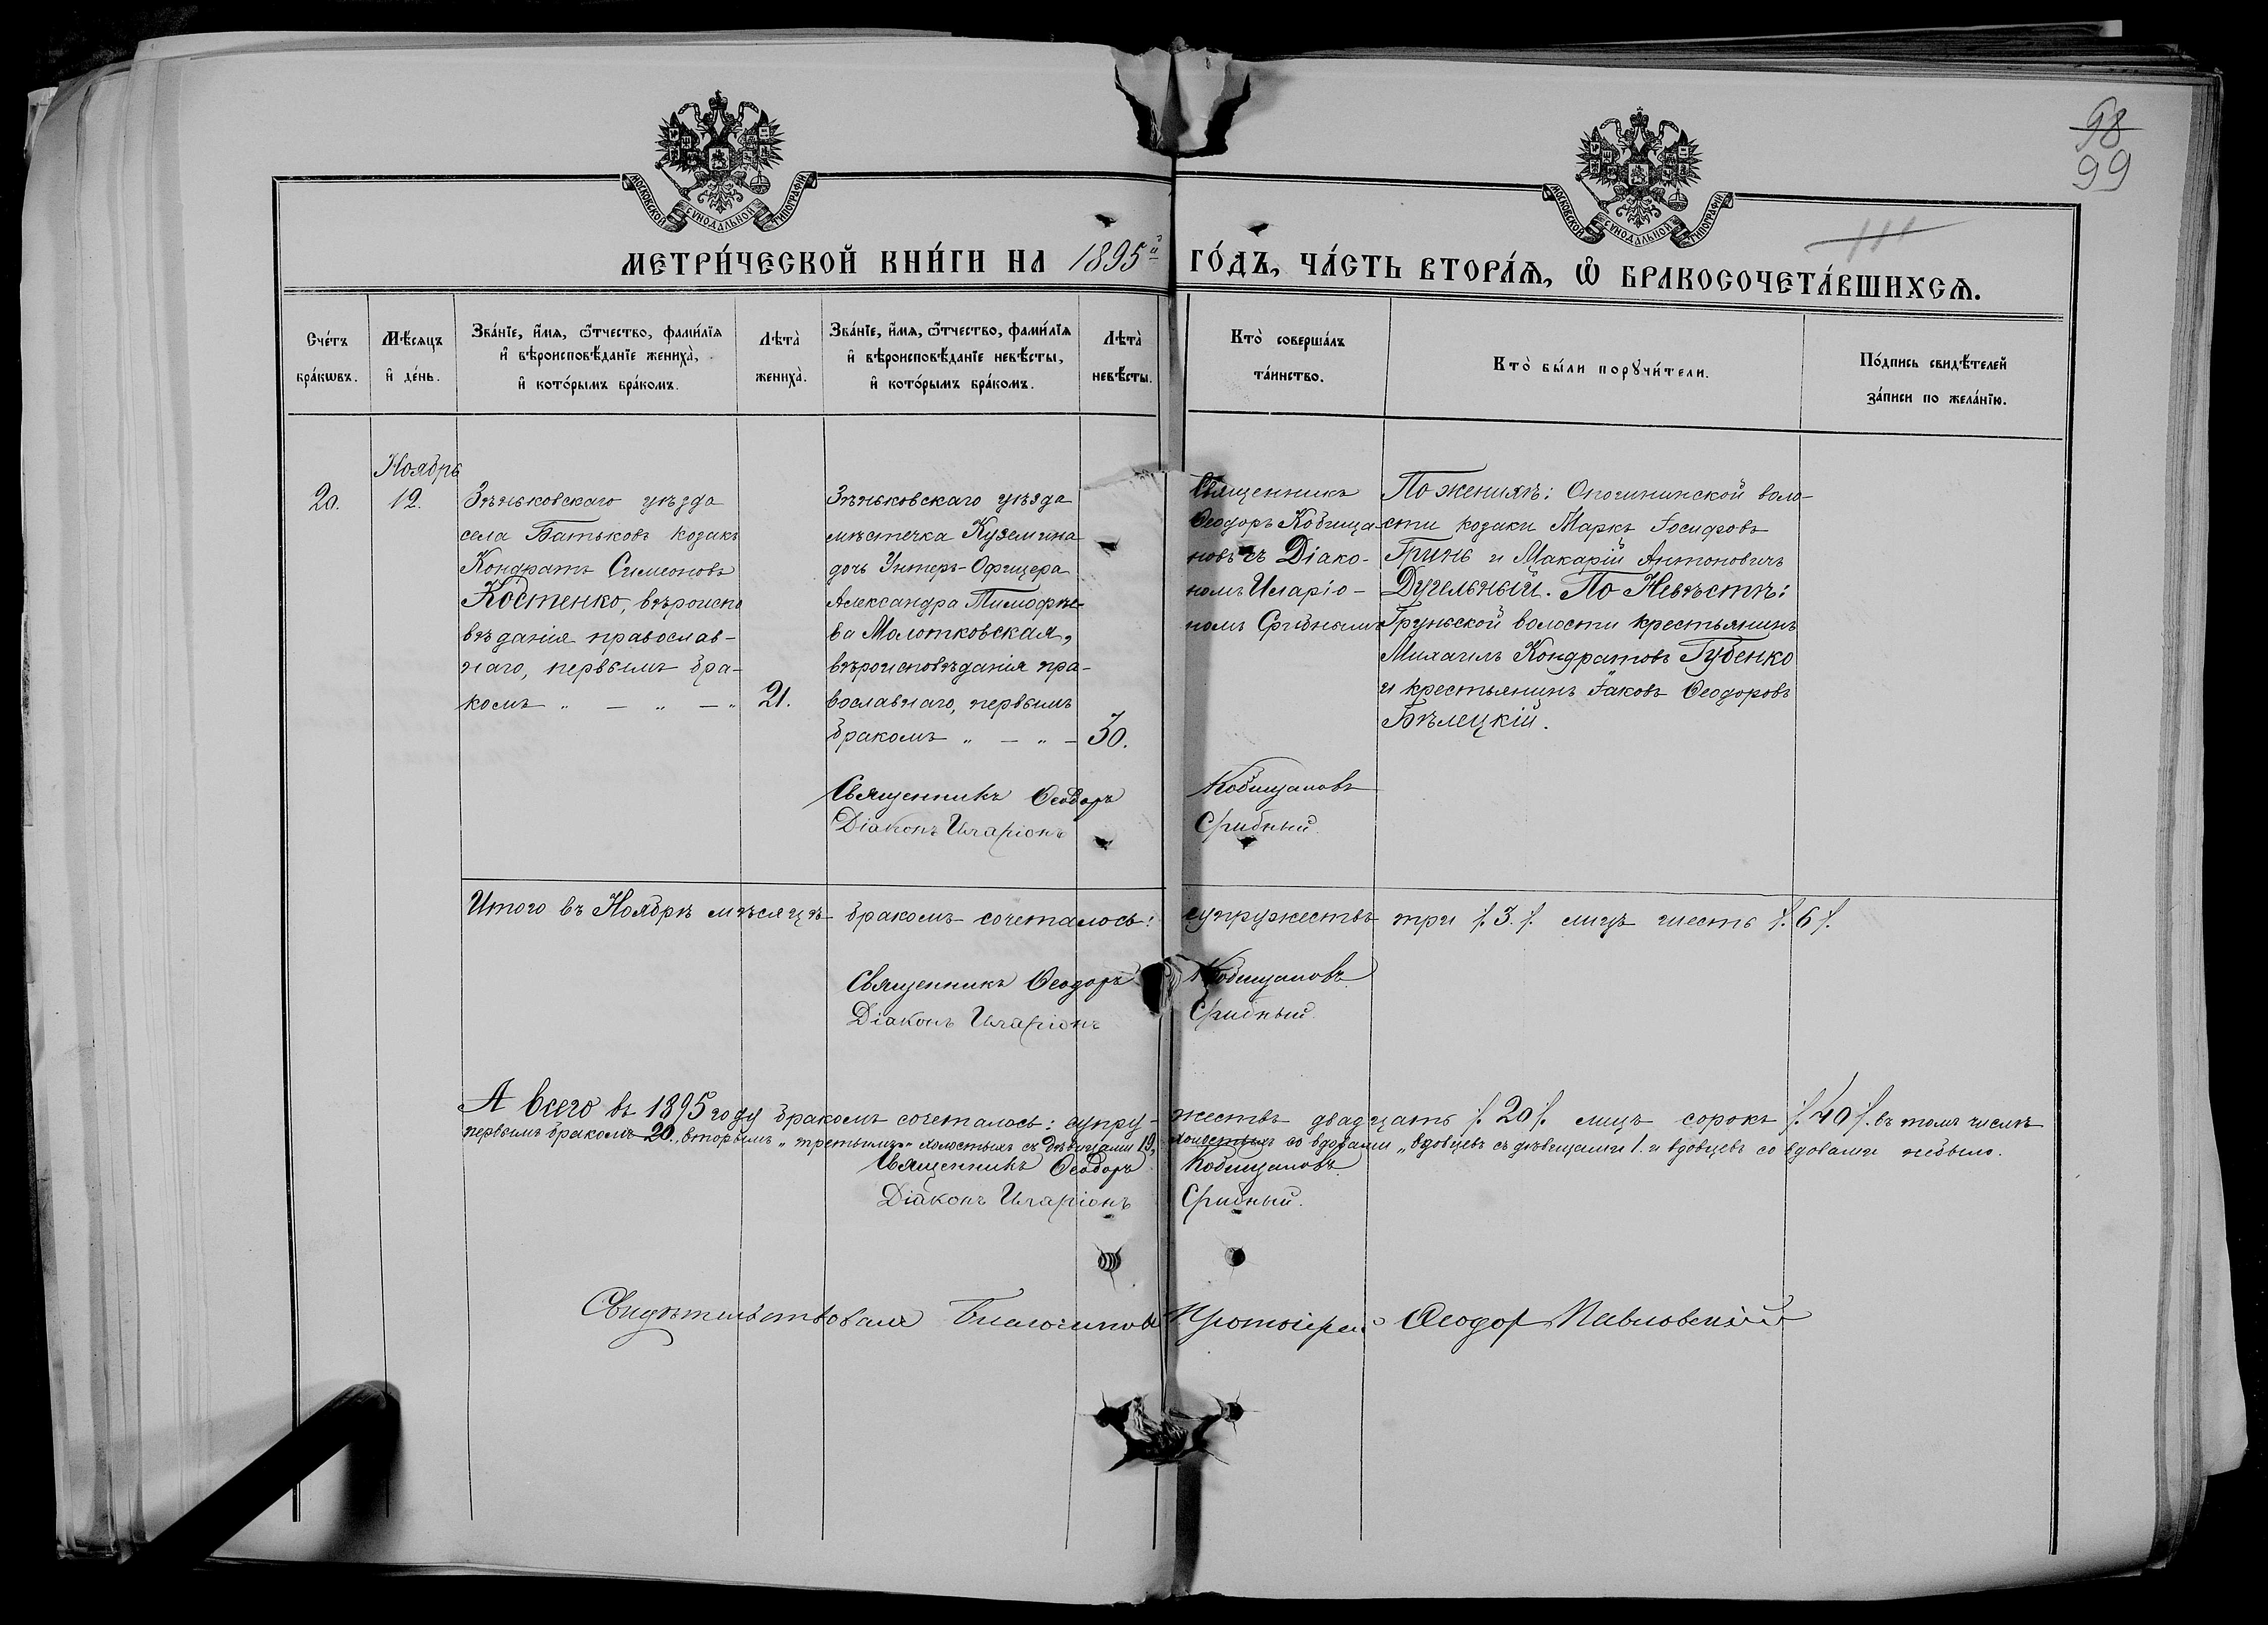 98
99
111
МОСКОВСКОЙ СѴНОДАЛЬНОЙ ТИПОГРАФІИ
МОСКОВСКОЙ СѴНОДАЛЬНОЙ ТИПОГРАФІИ
МЕТРИ́ЧЕСКОЙ КНИ́ГИ НА 1895й ГО́ДЪ, ЧА́СТЬ ВТОРА́Ѧ, Ѽ БРАКОСОЧЕТА́ВШИХСѦ.
Сче́тъ
бра́кѡвъ.
Мѣ́сяцъ
и҆ де́нь.
Зва́нїе, и҆́мя, ѻ҆́тчество, фами́лїя
и҆ вѣроисповѣ́данїе жениха̀,
и҆ кото́рымъ бра́комъ.
Лѣта̀
жениха̀.
Зва́нїе, и҆́мя, ѻ҆́тчество, фами́лїя
и҆ вѣроисповѣ́данїе невѣ́сты,
и҆ кото́рымъ бра́комъ.
Лѣта̀
невѣ́сты.
Кто̀ соверша́лъ
та́инство.
Кто̀ бы́ли порꙋчи́тели.
По́дпись свидѣ́телей
за́писи по жела́нїю.
20.
Ноябрь
12.
Зѣньковскаго уѣзда
села Батьковъ козакъ
Кондратъ Симеоновъ
Костенко, вѣроиспо
вѣданія православ-
наго, первымъ бра-
комъ " — " — "
21.
Зѣньковскаго уѣзда
мѣстечка Куземина
дочь Унтеръ-Офицера
Александра Тимофѣе-
ва Молотковская,
вѣроисповѣданія пра-
вославнаго, первымъ
бракомъ " — " —
30.
Священникъ
Ѳеодоръ Кобища-
новъ съ Діако-
номъ Иларіо-
номъ Срібнымъ
По женихѣ: Опошнинской воло-
сти козаки Маркъ Іосифовъ
Гринь и Макарій Антоновичъ
Дугельный. По Невѣстѣ:
Груньской волости крестьянинъ
Михаилъ Кондратовъ Губенко
и крестьянинъ Іаковъ Ѳеодоровъ
Бѣлецкій.
Священникъ Ѳеодоръ Кобищановъ
Діаконъ Иларіонъ Срибный.
Итого въ Ноябрѣ мѣсяцѣ бракомъ сочеталось: супружествъ три /.3./. лицъ шесть /.6/.
Священникъ Ѳеодоръ Кобищановъ.
Діаконъ Иларіонъ Срибный.
А всего въ 1895 году бракомъ сочеталось: супру-жествъ двадцать /.20/. лицъ сорокъ /.40/. въ томъ числѣ
первымъ бракомъ 20., вторымъ „ третьимъ „ холостыхъ съ дѣвицами 19, холостыхъ со вдовами „ вдовцевъ съ дѣвицами 1. и вдовцевъ со вдовами небыло.
Священникъ Ѳеодоръ Кобищановъ.
Діаконъ Иларіонъ Срибный.
Свидѣтельствовалъ Благочинный Протоіерей Ѳеодоръ Павловскій